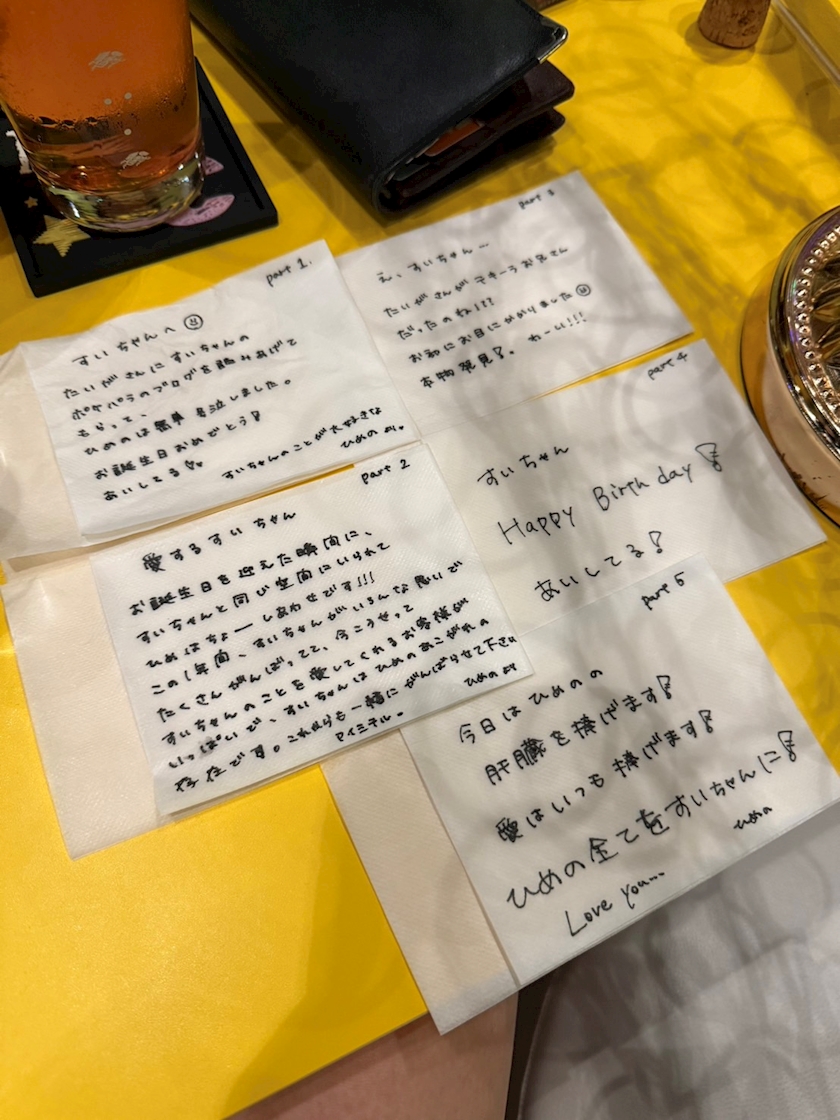 part 1.
すいちゃんへ
たいがさんにすいちゃんの
ポケパラのブログを読みあげて
もらって、
ひめのは簡単 号泣しました。
お誕生日おめでとう!
あいしてる♡
すいちゃんのことが大好きな
ひめの より。
part 2
愛するすいちゃん
お誕生日を迎えた瞬間に、
すいちゃんと同じ空間にいられて
ひめはちょーしあわせです!!!
この1年間、すいちゃんがいろんな思いで
たくさんがんばってて、今こうせって
すいちゃんのことを愛してくれるお客様が
いっぱいで、すいちゃんはひめのあこがれの
存在です。これからも一緒にがんばらせて下さい
アイミテル。
ひめの より
part 3
え、すいちゃん…
たいがさんがテキーラお兄さん
だったのね!??
お初にお目にかかりました
本物発見!。 わーい!!!
part 4
すいちゃん
Happy Birthday!
あいしてる!
part 5
今日はひめのの
肝臓を捧げます!
愛はいつも捧げます!
ひめの全てをすいちゃんに!
Love you...
ひめの